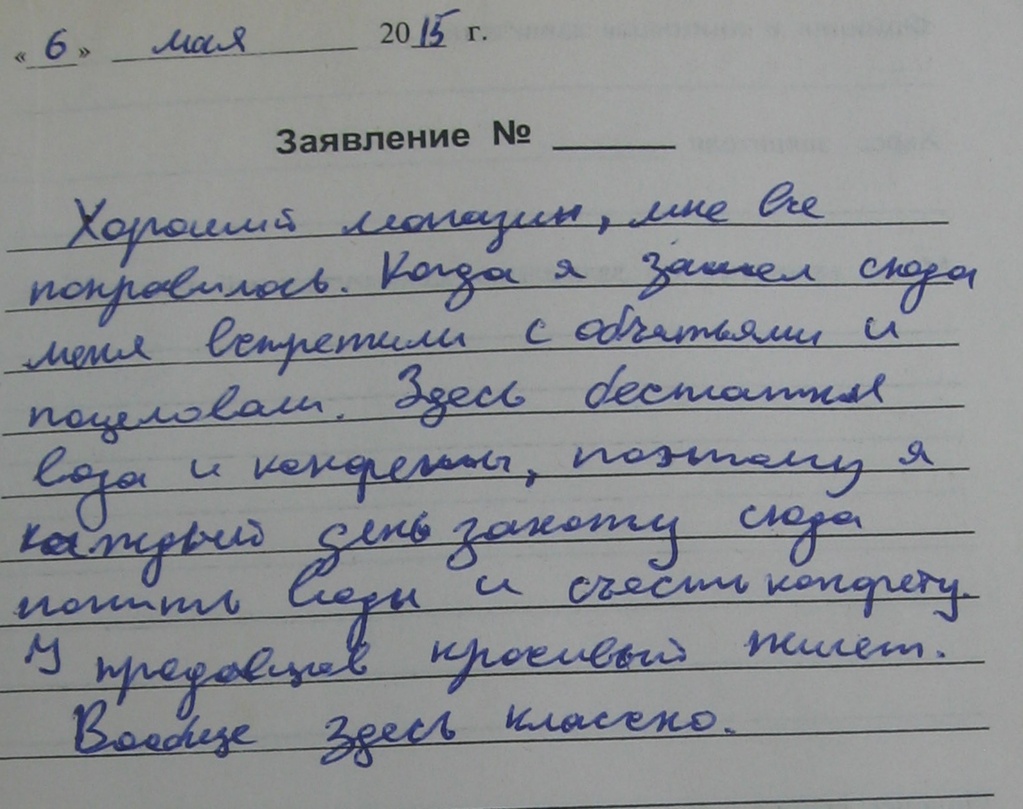 « 6 » мая 2015 г.
Заявление №
Хороший магазин, мне все
понравилось. Когда я зашел сюда
меня встретили с объятьями и
поцеловали. Здесь бесплатная
вода и конфеты, поэтому я
каждый день захожу сюда
попить воды и съесть конфету.
У продавцов красивый жилет.
Вообще здесь классно.